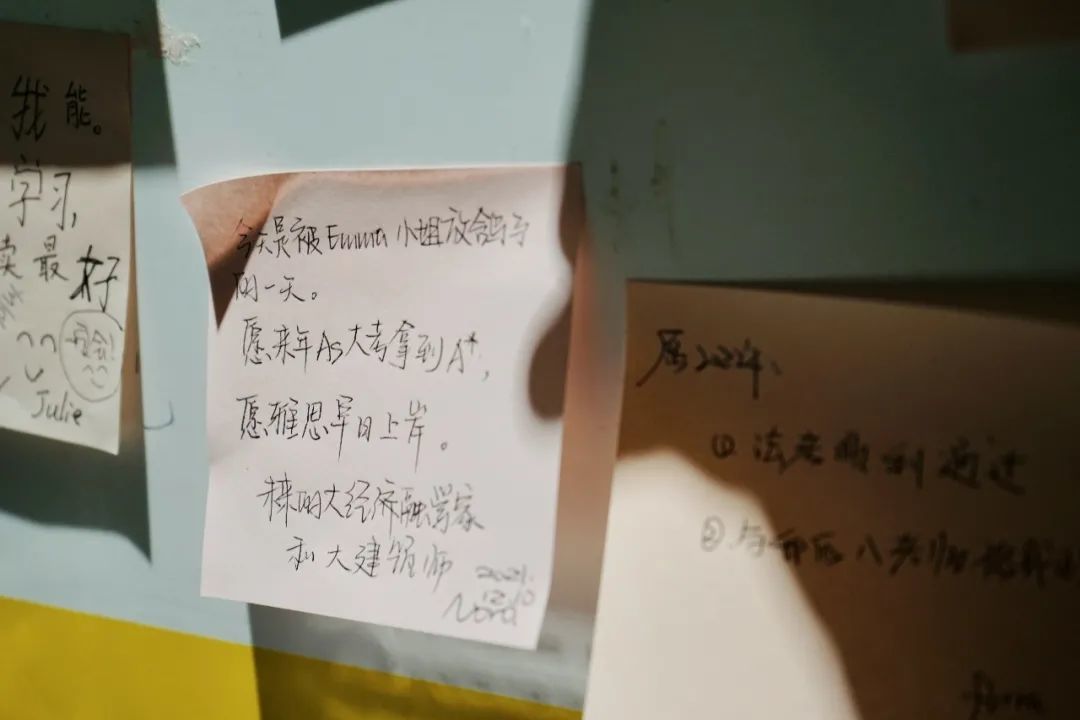 我能。
学习,
读最好
一定会!
Julie
今天是被Emma小姐放鸽子
的一天。
愿来年As大考拿到A*,
愿雅思早日上岸。
未来的大经济融学家
和大建筑师
2021.
12.10
Nora
愿2022年、
①法考顺利通过
②与